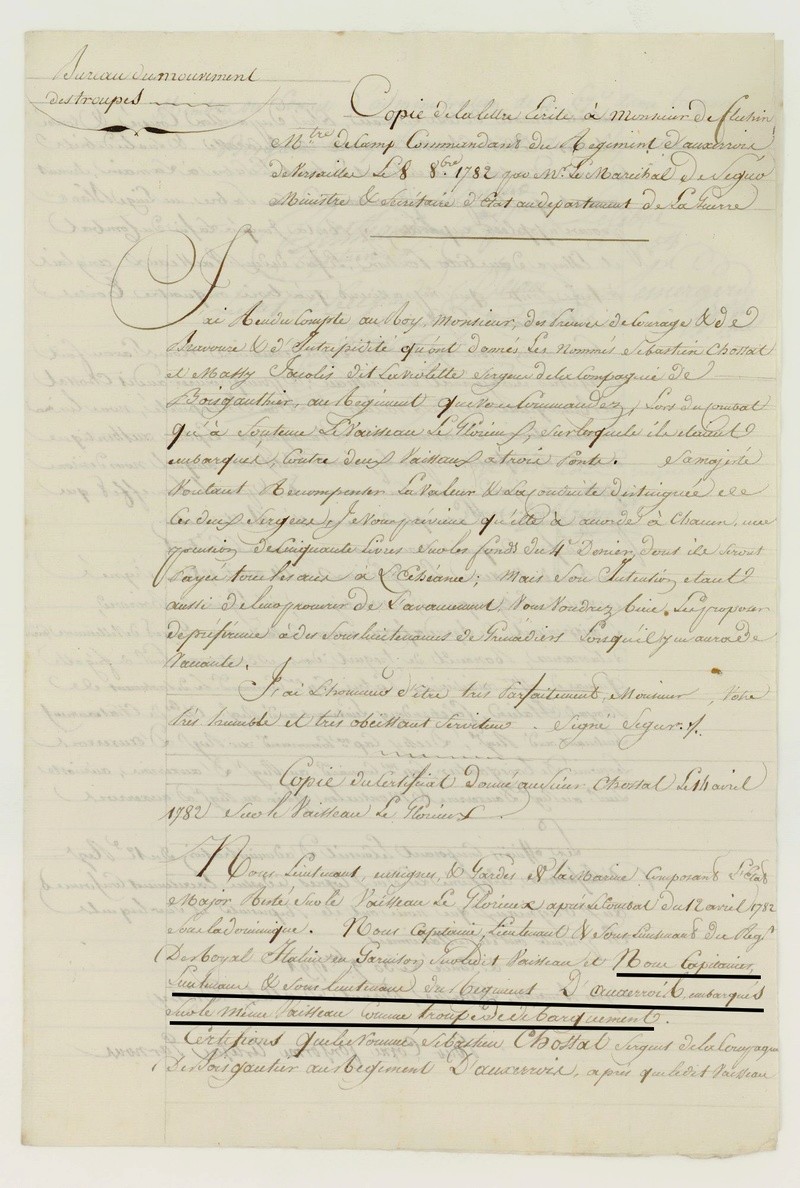 Bureau du mouvement
des troupes
Copie de la lettre Ecrite à Monsieur de
M.tre de Camp Commandant du Regiment d'auxerrois
de Versailles Le 8 8bre 1782 par Mr. Le Marechal De Ségur
Ministre & Secrétaire d'Etat au departement de La Guerre
J'ai Rendu Compte au Roy, Monsieur, des preuves de Courage & de
Bravoure & d'Intrepidité qu'ont donnés Les Nommés Sebastien Chossat
et Massy Jacolis dit La violette Sergens de la Compagnie de
Boisgauthier, au Regiment que Vous Commandez, Lors du Combat
qu'à Soutenu Le Vaisseau Le Glorieux, sur lequel ils etaient
embarqués, Contre deux Vaisseaux à trois Ponts. Sa majesté
Voulant Recompenser La Valeur & La Conduite distinguée de
Ces deux Sergens, Je Vous préviens qu'elle à accordé à Chacun une
pension de Cinquante Livres Sur les fonds du 4e Denier, dont ils Seront
Payés tous les ans à L'Echéance; Mais Son Intention etant
aussi de leur procurer de L'avancement, Vous Voudrez bien Les proposer
de préférence à des Sous lieutenances de Grenadiers Lorsqu'il y en aura de
Vacante.
J'ai L'honneur d'être très Parfaitement, Monsieur, Votre
très humble et très obéissant Serviteur. Signé Segur./.
Copie du Certificat Donné au Sieur Chossat Le 14 avril
1782 Sur le Vaisseau Le Glorieux
Nous Lieutenant, enseignes, & Gardes de la Marine Composant L'Etat
Major Resté Sur le Vaisseau Le Glorieux après Le Combat du 12 avril 1782
Sous la dominique. Nous Capitaine, Lieutenant & Sous Lieutenant du Regt
De Royal Italien en Garnison Sur Ledit Vaisseau et Nous Capitaines,
Lieutenans & Sous lieutenans du Regiment D'auxerrois embarqués
Sur le même Vaisseau Comme troupe de debarquement.
Certifions que le Nommé Sebastien Chossat Sergent de la Compagnie
De Boisgautier au Regiment D'auxerrois, après que ledit Vaisseau